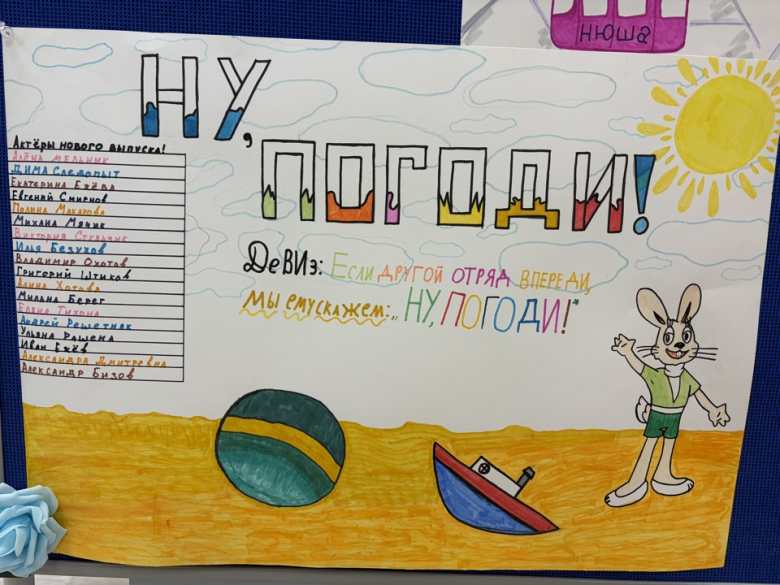 нюша
НУ,
ПОГОДИ!
Актёры нового выпуска!
Алёна Мельник
Дима Следопыт
Екатерина Ежёва
Евгений Смирнов
Полина Макарова
Михаил Мячик
Виктория
Илья Безухов
Владимир Охотов
Григорий Штиков
Алина Хотова
Милана Берег
Елена Тихона
Андрей Решетняк
Ульяна Рашена
Иван Ежёв
Александра Дмитревна
Александр Бизов
ДеВИз: Если другой отряд впереди,
мы ему скажем: „НУ, ПОГОДИ!"